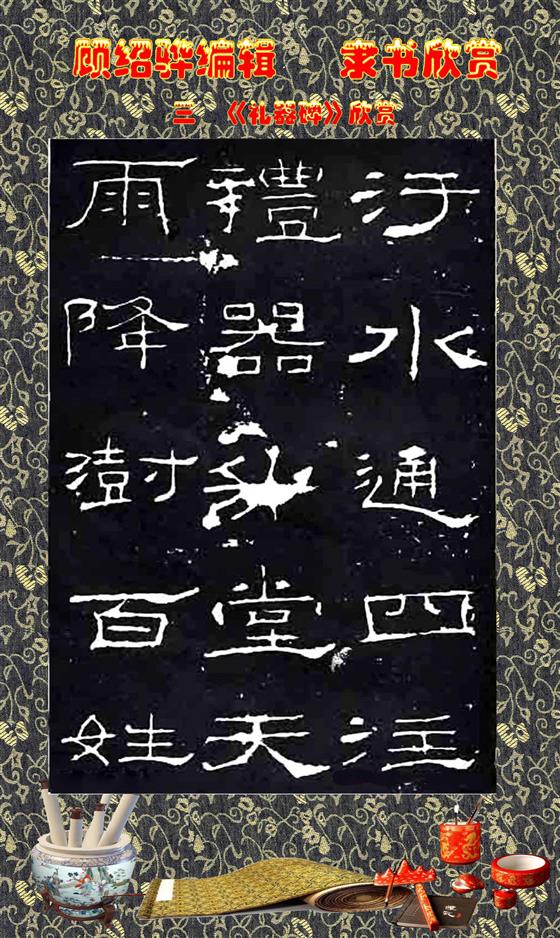 顾绍骅编辑 隶书欣赏
三 《礼器碑》欣赏
汙水通四注
禮器升堂天
雨降澍百姓